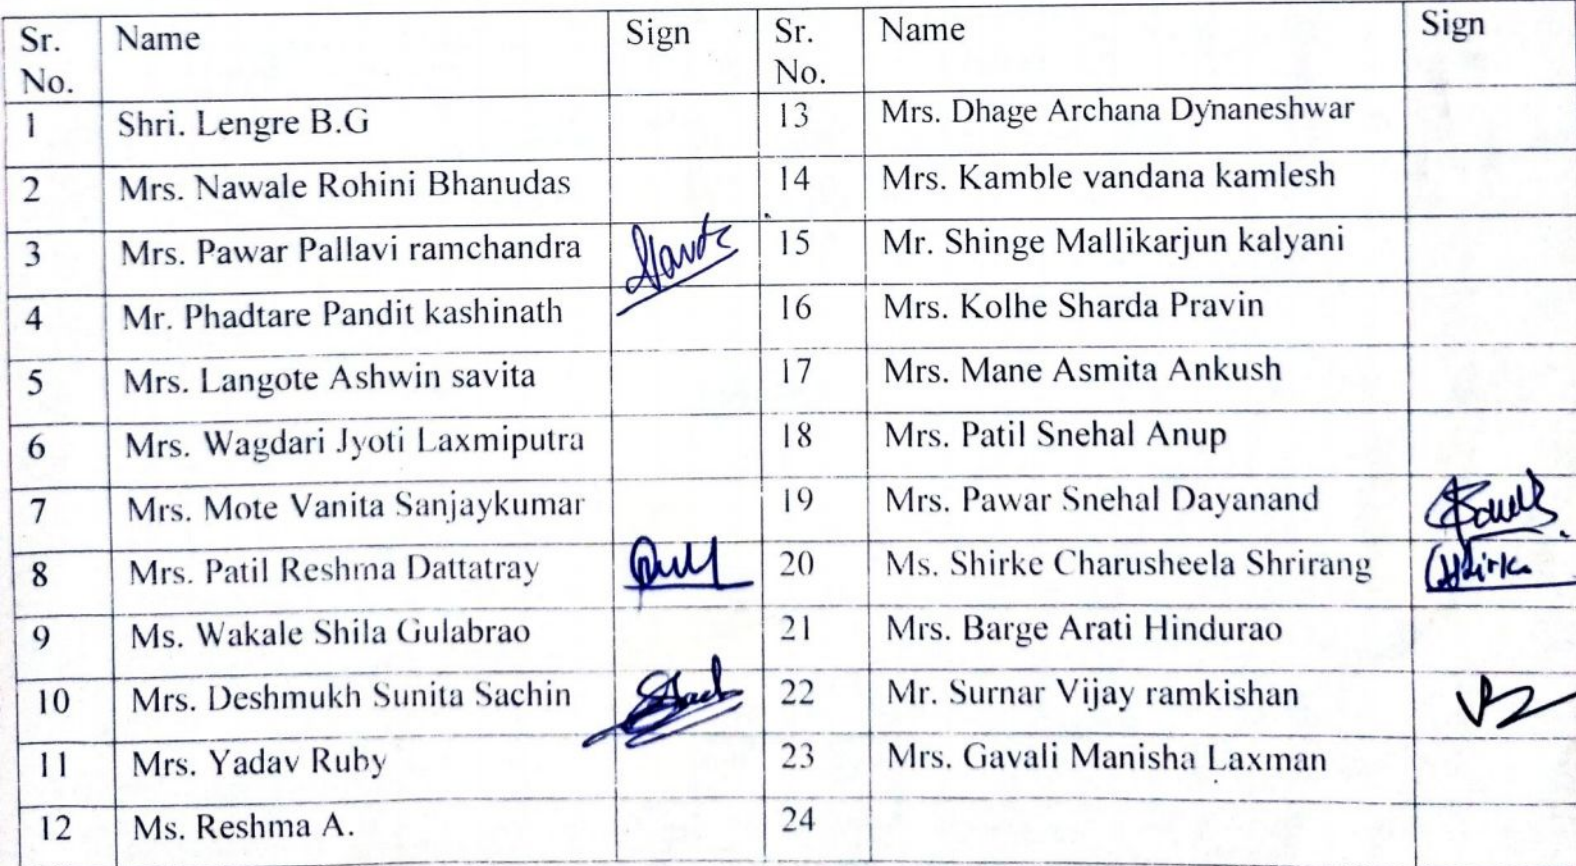 Sr. No. Name Sign Sr. No. Name Sign
1 Shri. Lengre B.G 13 Mrs. Dhage Archana Dynaneshwar
2 Mrs. Nawale Rohini Bhanudas 14 Mrs. Kamble vandana kamlesh
3 Mrs. Pawar Pallavi ramchandra 15 Mr. Shinge Mallikarjun kalyani
4 Mr. Phadtare Pandit kashinath 16 Mrs. Kolhe Sharda Pravin
5 Mrs. Langote Ashwin savita 17 Mrs. Mane Asmita Ankush
6 Mrs. Wagdari Jyoti Laxmiputra 18 Mrs. Patil Snehal Anup
7 Mrs. Mote Vanita Sanjaykumar 19 Mrs. Pawar Snehal Dayanand
8 Mrs. Patil Reshma Dattatray 20 Ms. Shirke Charusheela Shrirang
9 Ms. Wakale Shila Gulabrao 21 Mrs. Barge Arati Hindurao
10 Mrs. Deshmukh Sunita Sachin 22 Mr. Surnar Vijay ramkishan
11 Mrs. Yadav Ruby 23 Mrs. Gavali Manisha Laxman
12 Ms. Reshma A. 24